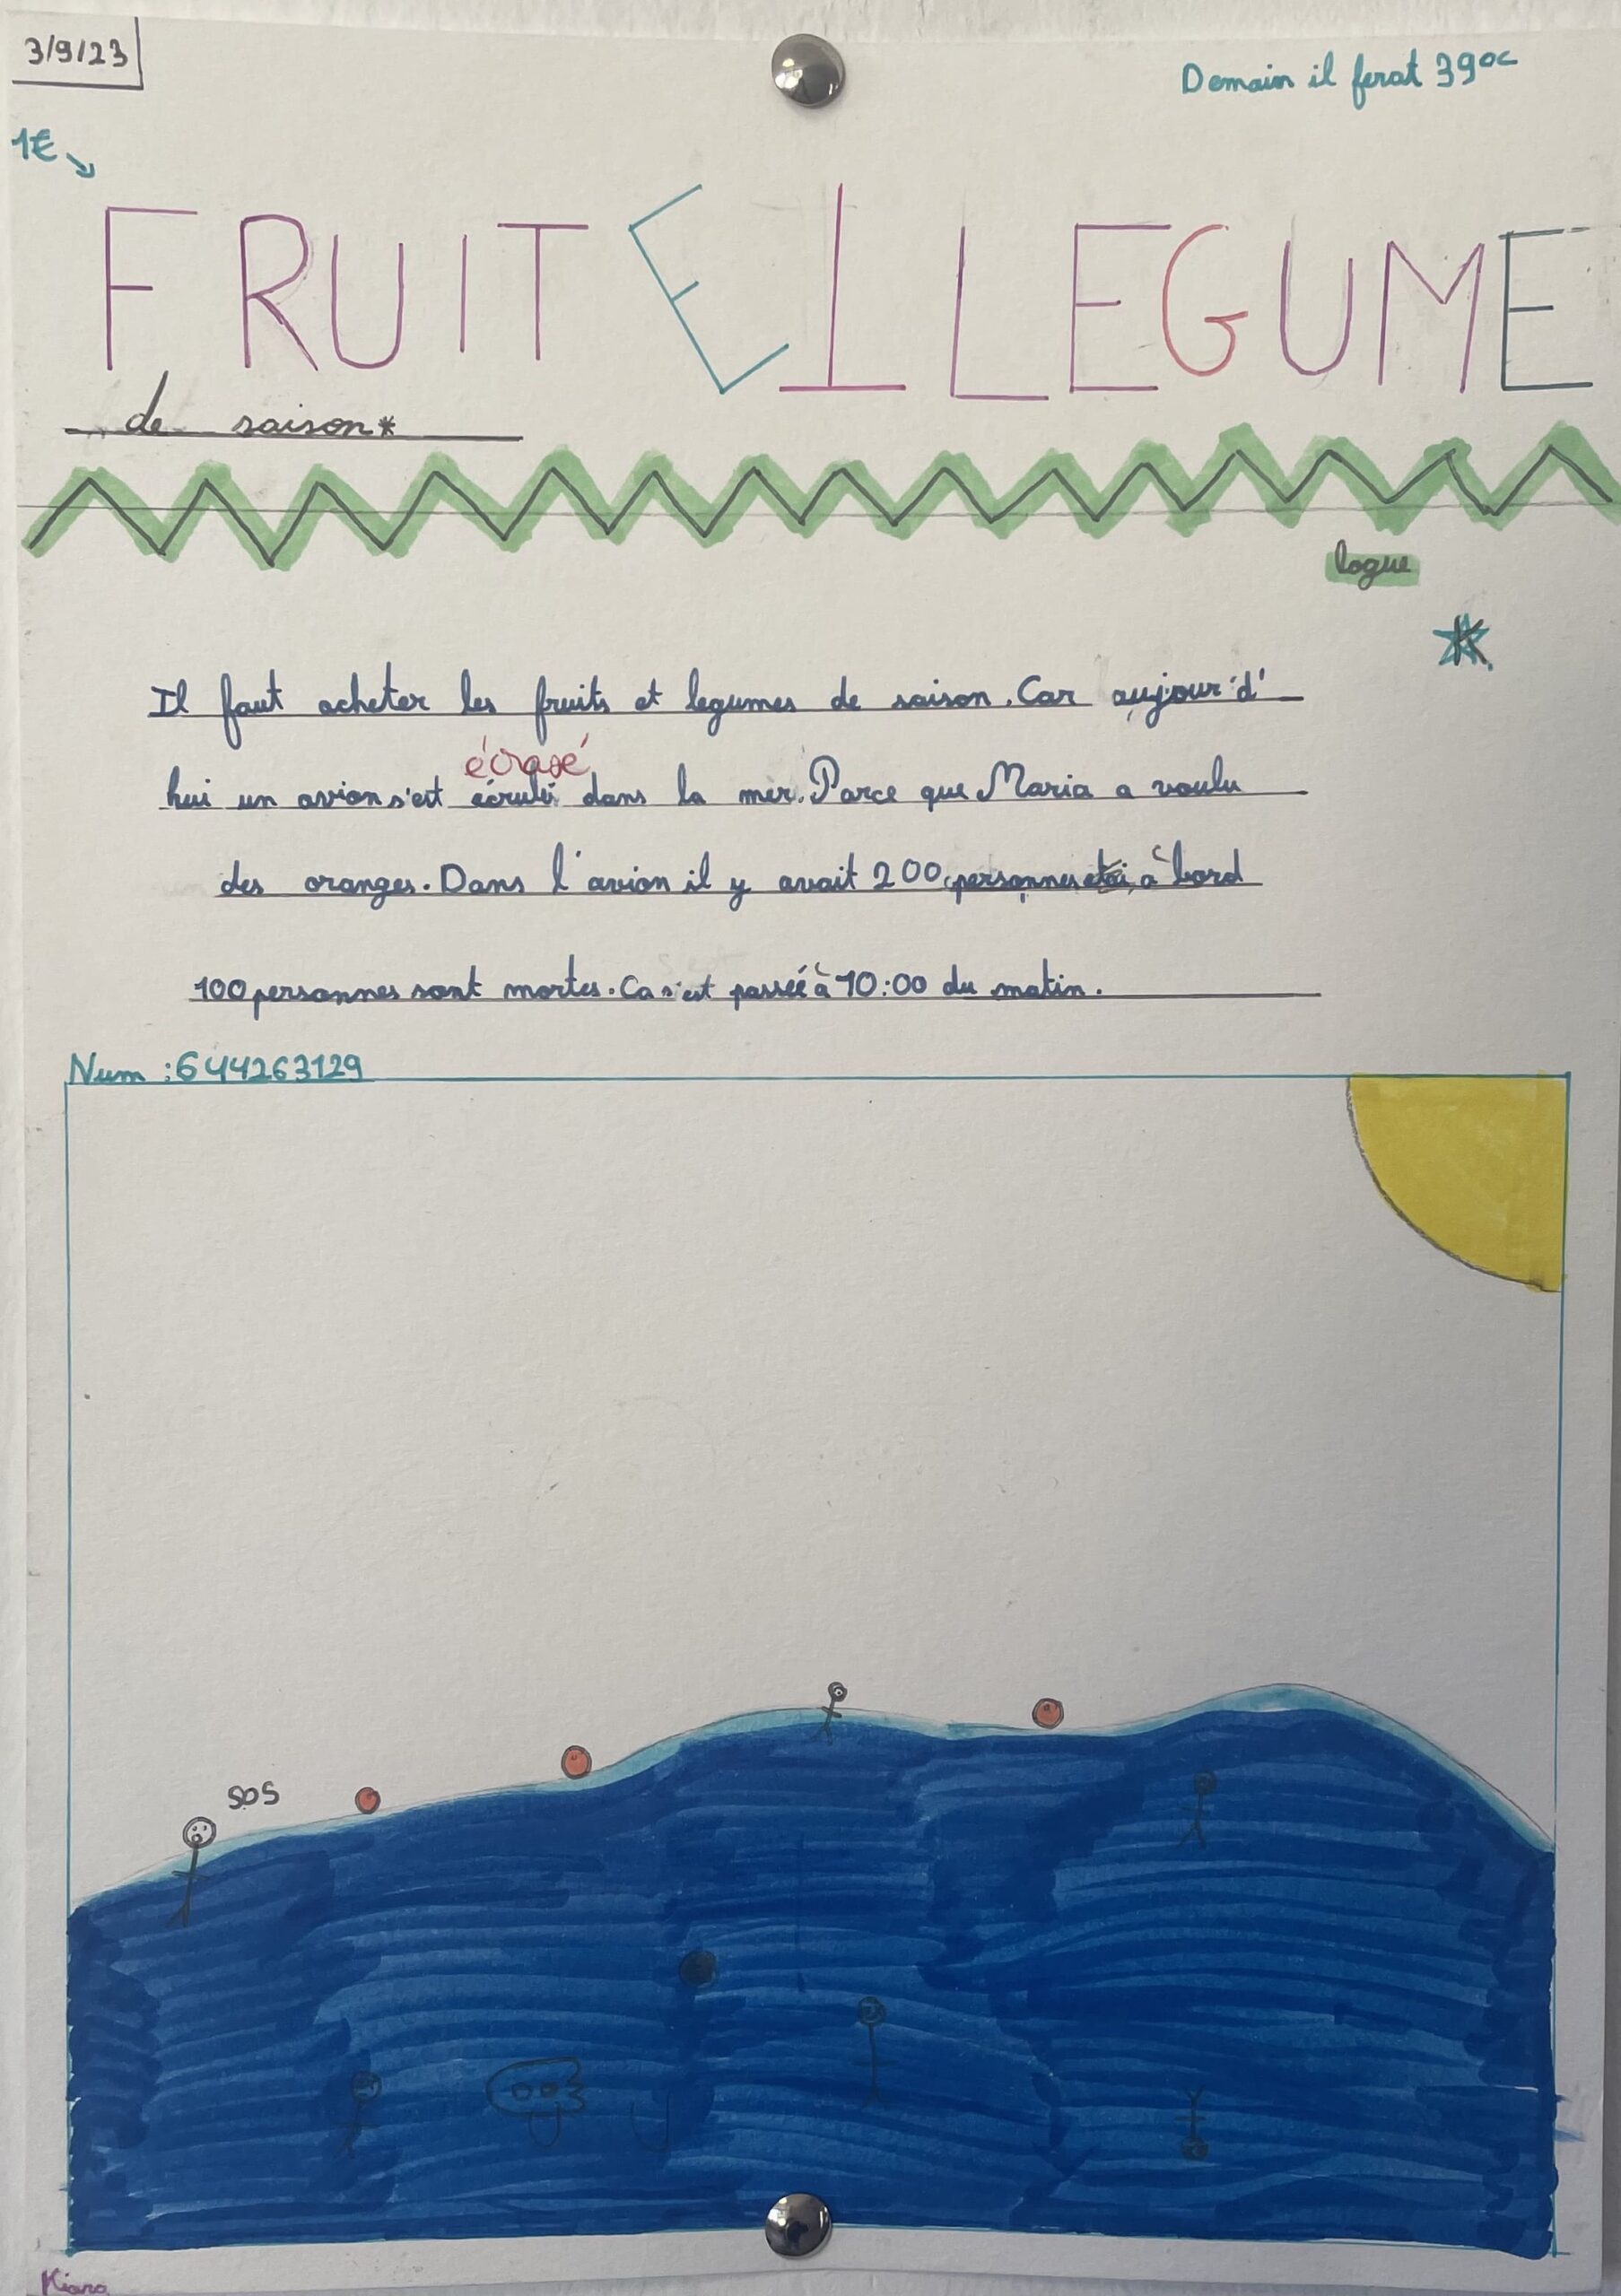 3/9/23
Demain il ferat 39°C
1€
FRUIT ET LEGUME
de saison*
logue
K
Il faut acheter les fruits et legumes de saison. Car aujour'd'
écrasé
hui un avion s'est dans la mer. Parce que Maria a voulu
des oranges. Dans l'avion il y avait 200 personnes à bord
100 personnes sont mortes. Ca s'est passée à 10:00 du matin.
Num : 644263129
SOS
Kiara